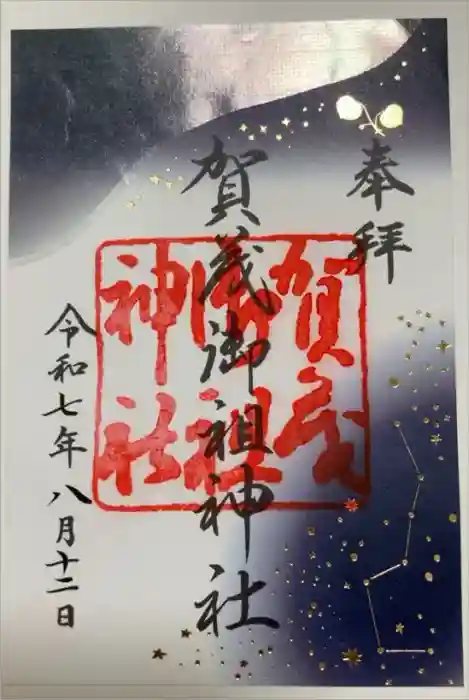 奉拝
賀茂御祖神社
賀茂
御祖
神社
令和七年八月十二日